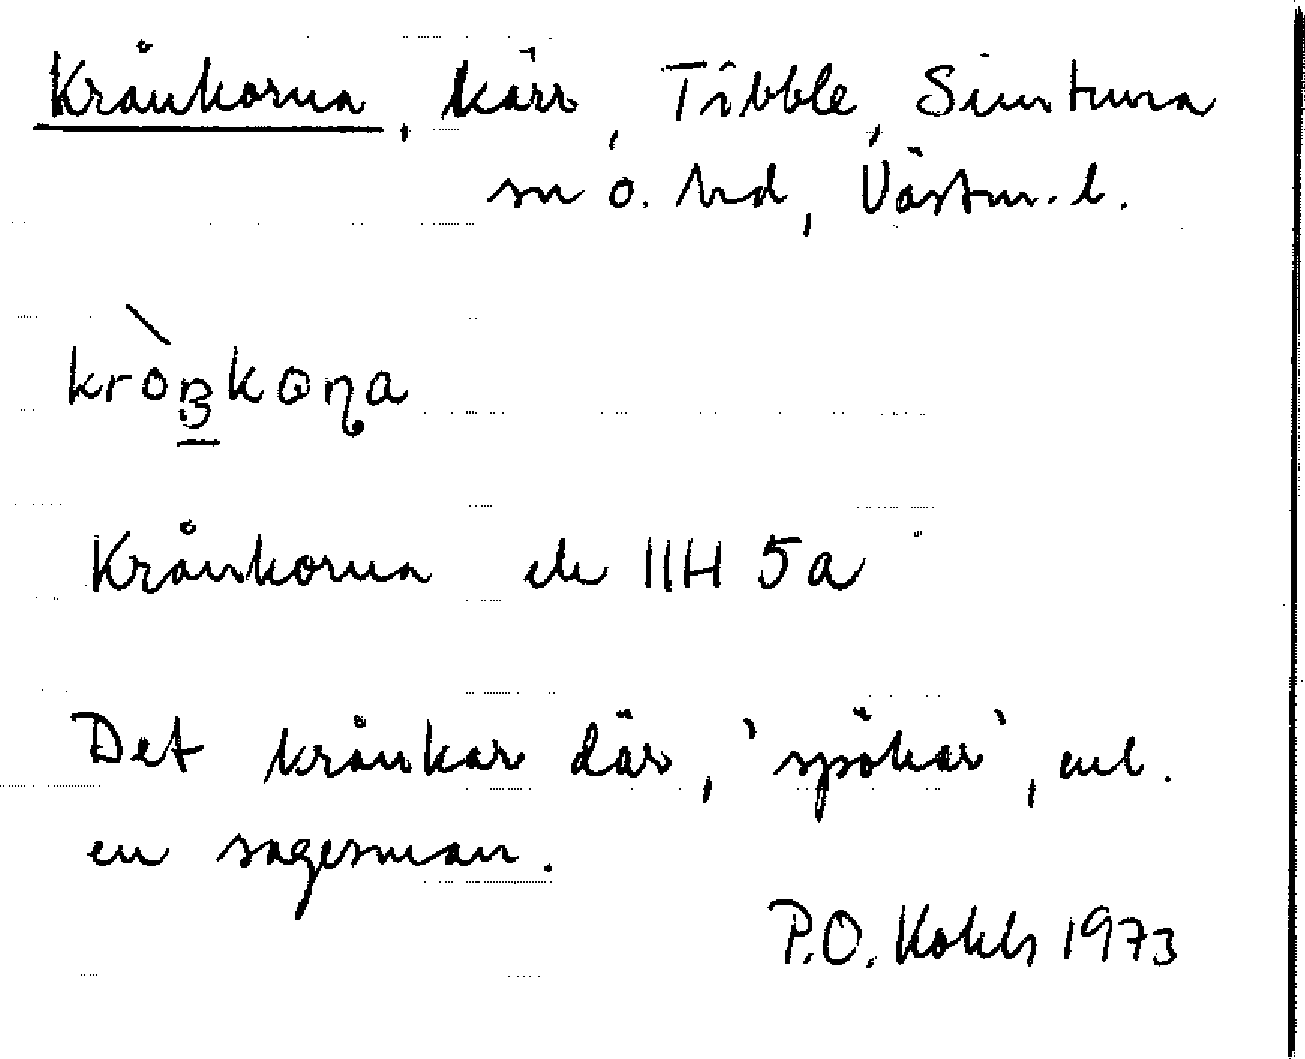 Krånkorna, kärr, Tibble, Simtuna
sn o. hd, Västm. l.
Krånkorna ek 11H 5a
Det krånkar där, 'spökar', enl.
en sagesman.
P.O. 1973